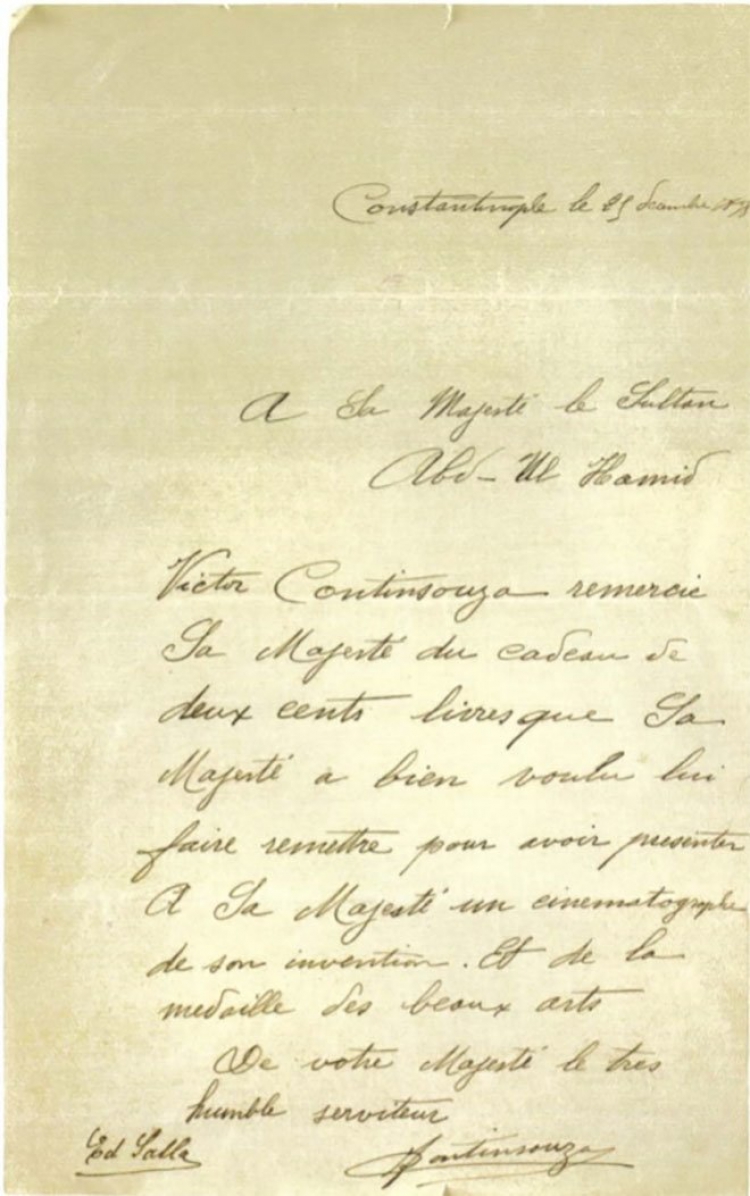 Constantinople le 25 decembre
A Sa Majesté le Sultan
Abd-Ul Hamid
Victor Continsouza remercie
Sa Majesté du cadeau de
deux cents livres que Sa
Majesté a bien voulu lui
faire remettre pour avoir presenter
A Sa Majesté un cinematographe
de son invention. Et de la
medaille des beaux arts
De votre Majesté le tres
humble serviteur
Ed Salla
Continsouza